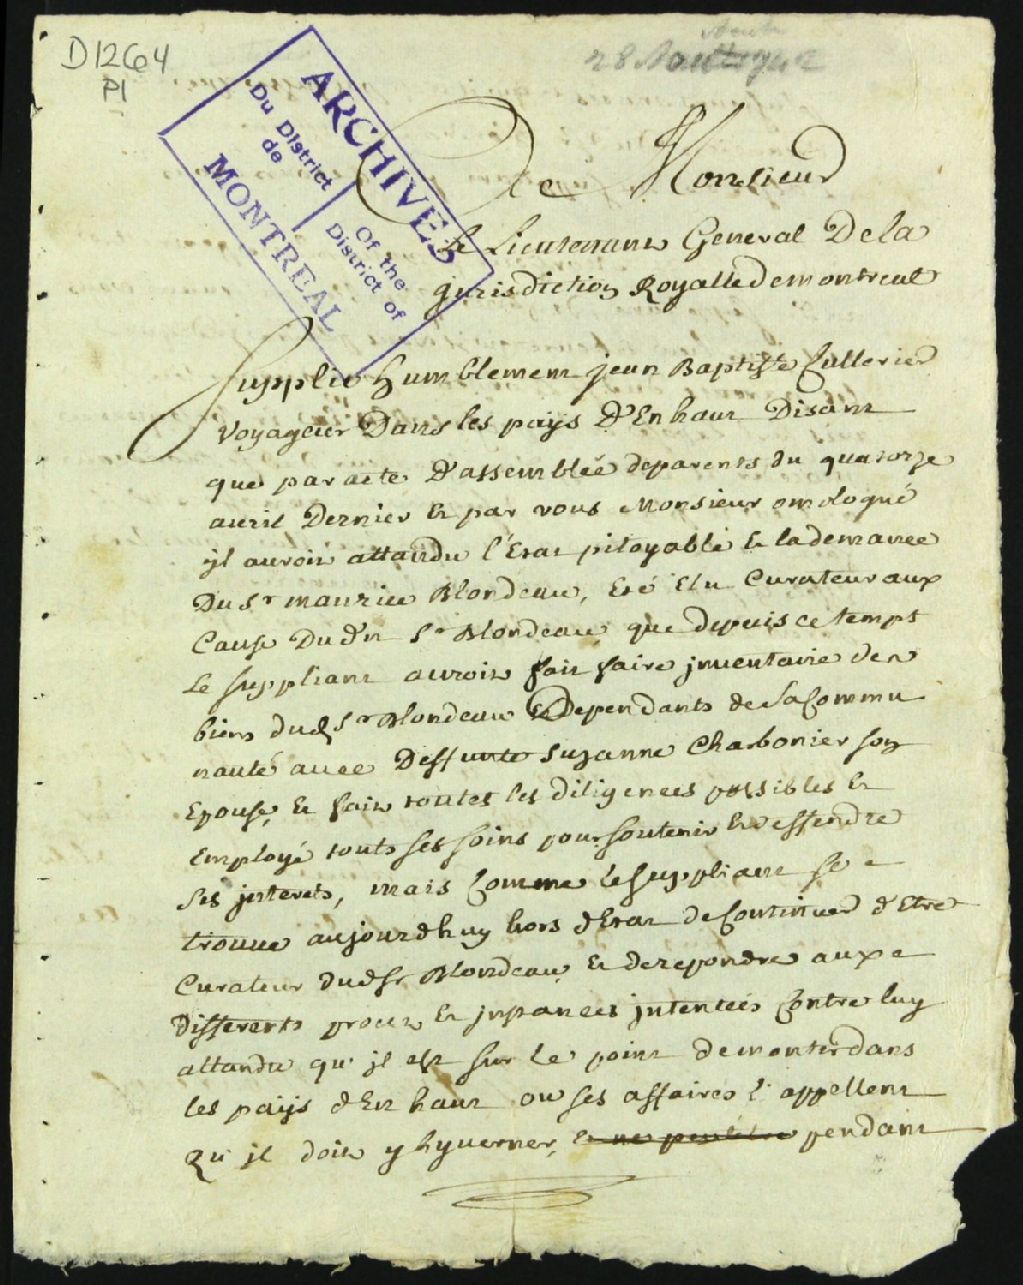 D1264
P1
28
ARCHIVES
Du District Of the
de District of
MONTREAL
A Monsieur
Le Lieutenant General De la
jurisdiction Royalle de montreal
Supplie humblement jean Baptiste Cullerier
voyageur Dans les païs d'En haut Disant
que par acte d'assemblée de parents du quatorze
auril Dernier & par vous Monsieur omologué
jl auroit attandu l'Etat pitoyable & la demance
Du Sr maurice Blondeau, Eté Elu Curateur aux
Cause Dudit Sr Blondeau, que depuis ce temps
Le suppliant auroit fait faire jnuentaire des
biens dud Sr Blondeau & Dependants de la Commu
nauté auec Deffunte Suzanne Charbonier son
Epouse, & fait toutes les diligences possibles &
Employé touts ses soins pour soutenir & deffendre
ses jnterets, mais Comme le suppliant se
trouue aujourdhuy hors d'Etat de Continuer d'Etre
Curateur dud Sr Blondeau & de repondre aux
differents procez & jnstances jntentées Contre luy
attandu qu'jl est sur le point de monter dans
les païs d'En haut ou ses affaires l'appellent
Qu'jl doit y hyuerner, & ne peut pendant